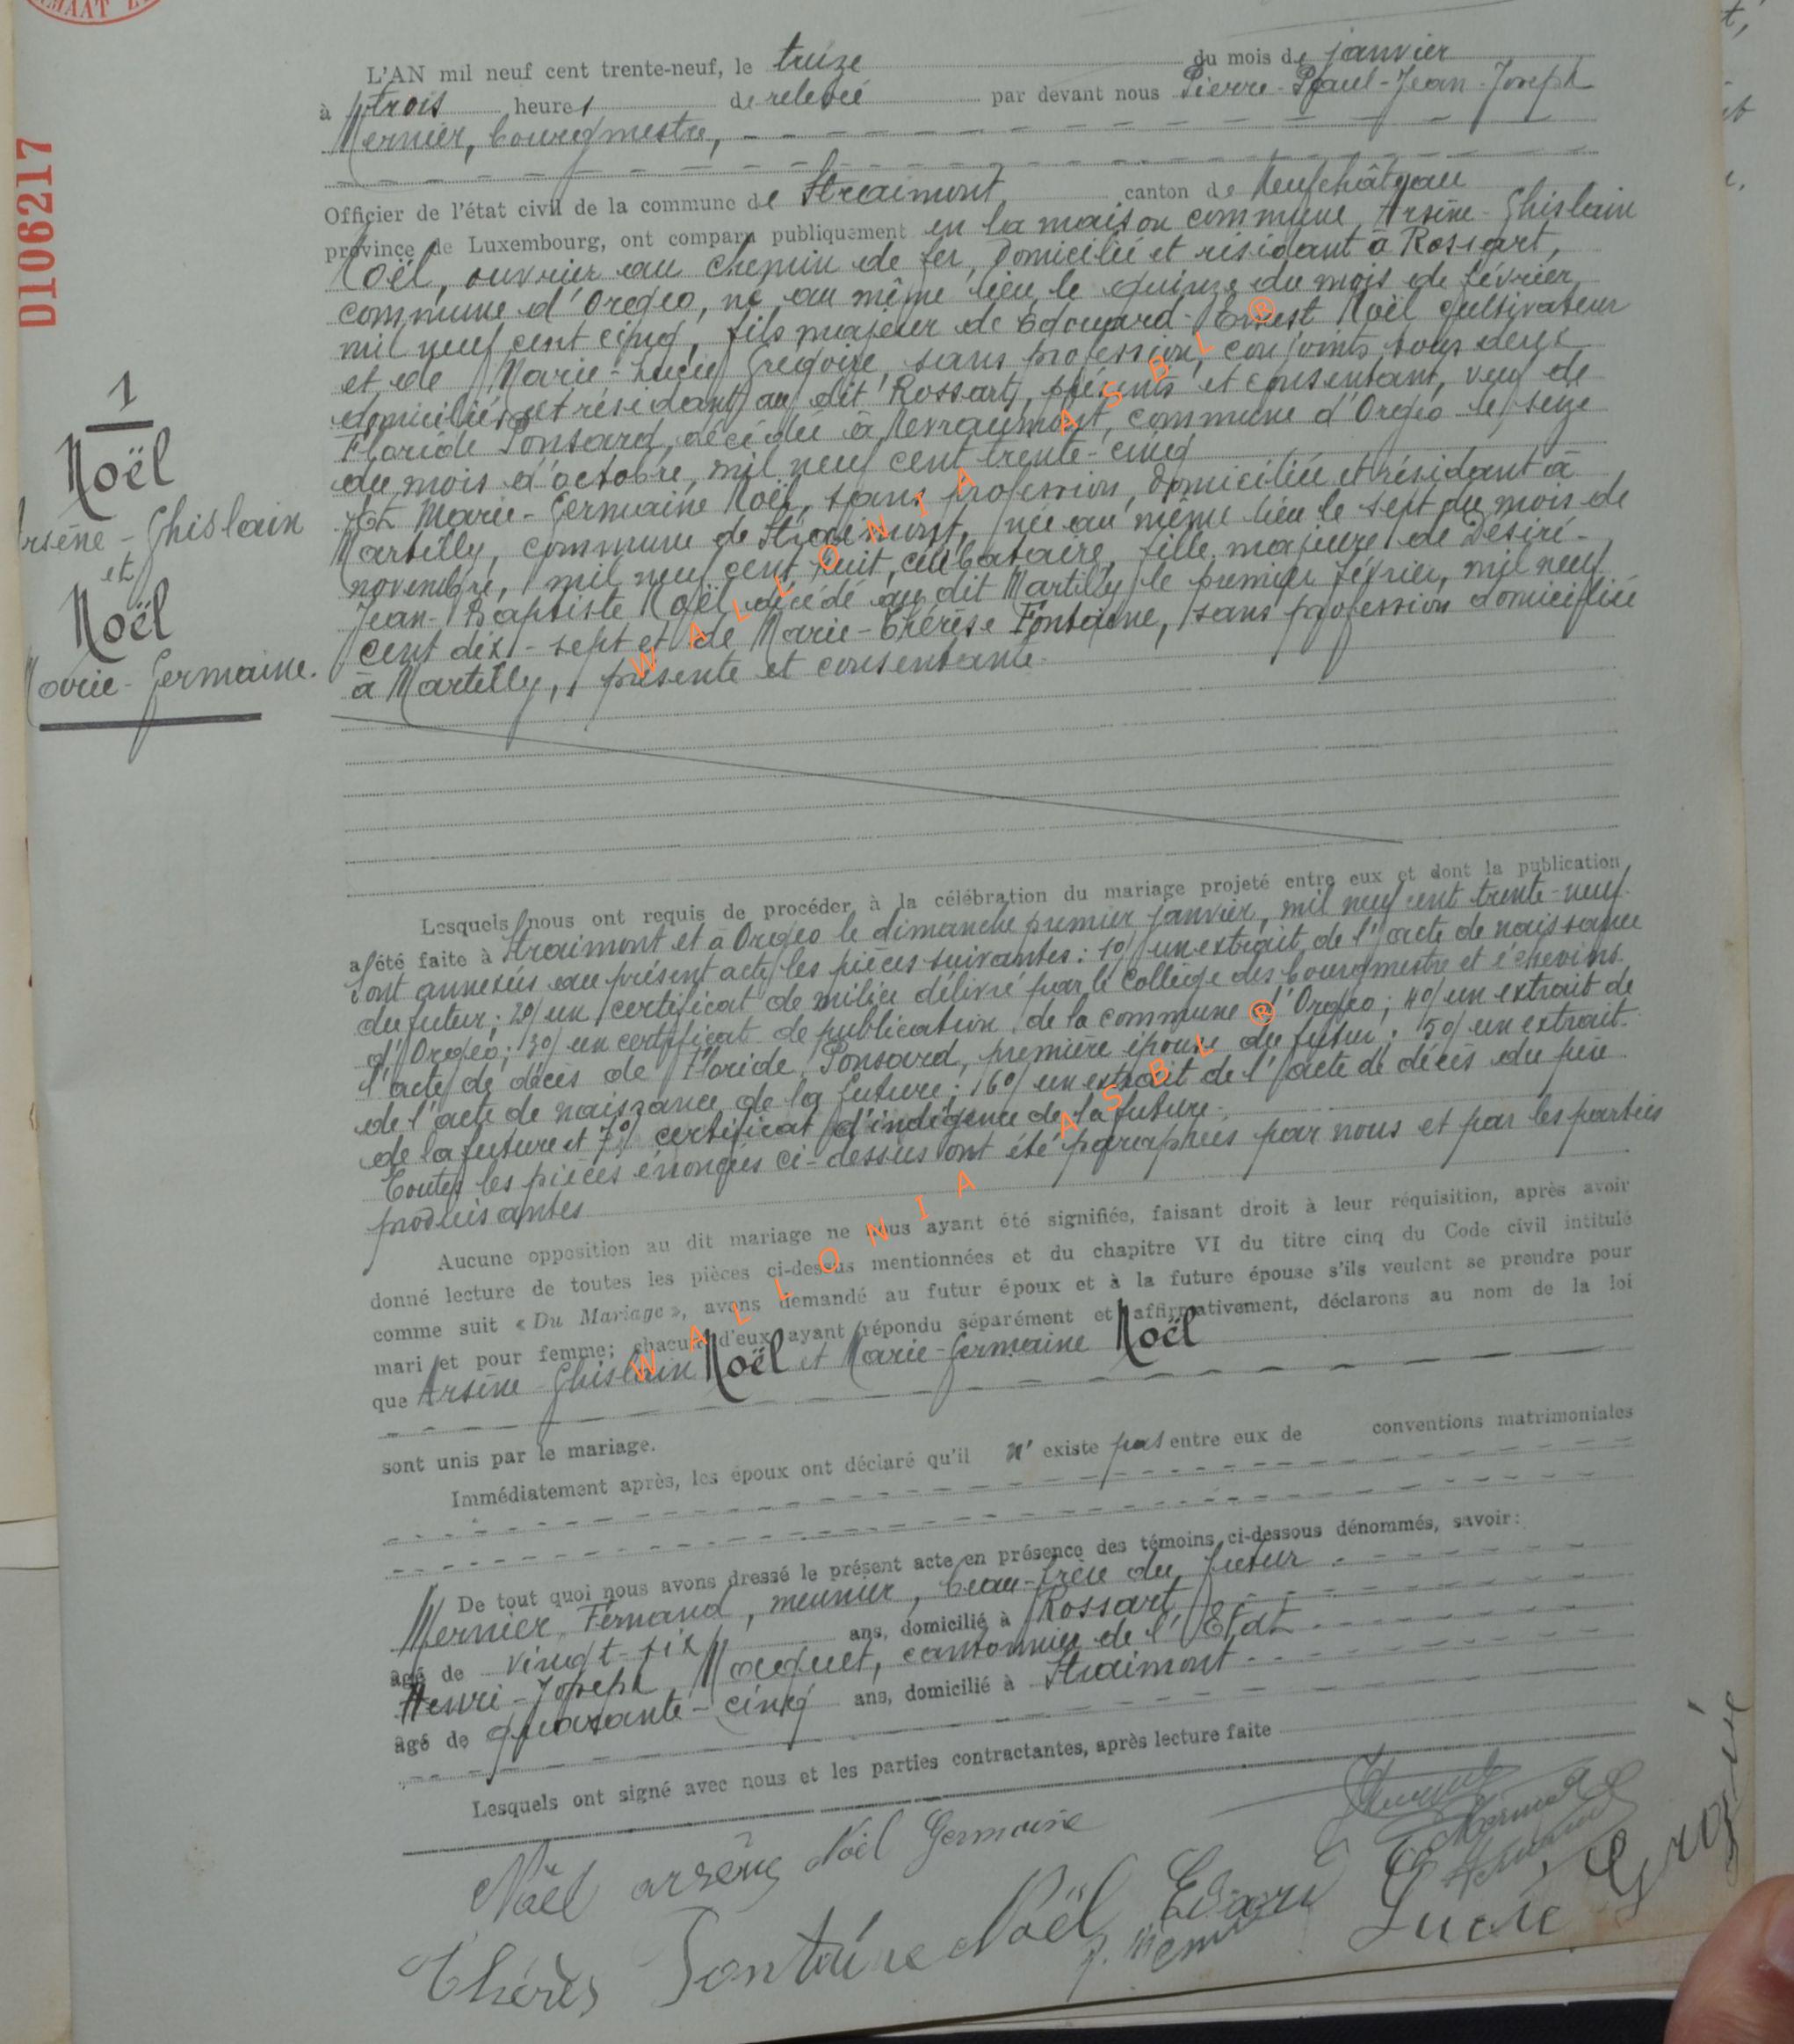 MAAT
D106217
L'AN mil neuf cent trente-neuf, le treize du mois de janvier
à trois heures de relevée par devant nous Pierre-Paul-Jean-Joseph
Mernier, bourgmestre,
Officier de l'état civil de la commune de Straimont canton de Neufchâteau
province de Luxembourg, ont comparu publiquement en la maison commune, Arsène-Ghislain
Noël, ouvrier au chemin de fer, domicilié et résidant à Rossart,
commune d'Orgeo, né au même lieu le quinze du mois de février
mil neuf cent cinq, fils majeur de Edouard-Ernest Noël cultivateur
et de Marie-Lucie Grégoire, sans profession, conjoints, tous deux
domiciliés et résidant au dit Rossart, présents et consentant, veuf de
Floride Ponsard, décédée à Nevraumont, commune d'Orgeo le seize
du mois d'octobre, mil neuf cent trente-cinq
Et Marie-Germaine Noël, sans profession, domiciliée et résidant à
Martilly, commune de Straimont, née au même lieu le sept du mois de
novembre, mil neuf cent huit, célibataire, fille majeure de Désiré-
Jean-Baptiste Noël décédé au dit Martilly le premier février, mil neuf
cent dix-sept et de Marie-Thérèse Fontaine, sans profession domiciliée
à Martilly, présente et consentante.
1
Noël
Arsène-Ghislain
et
Noël
Marie-Germaine.
Lesquels nous ont requis de procéder à la célébration du mariage projeté entre eux et dont la publication
a été faite à Straimont et à Orgeo le dimanche premier janvier, mil neuf cent trente-neuf.
Sont annexées au présent acte les pièces suivantes: 1o/ un extrait de l'acte de naissance
du futur; 2o/ un certificat de milice délivré par le Collège des bourgmestre et échevins
d'Orgeo; 3o/ un certificat de publication de la commune d'Orgeo; 4o/ un extrait de
l'acte de décès de Floride Ponsard, première épouse du futur; 5o/ un extrait
de l'acte de naissance de la future; 6o/ un extrait de l'acte de décès du père
de la future et 7o/ certificat d'indigence de la future.
Toutes les pièces énoncées ci-dessus ont été paraphées par nous et par les parties
produisantes
Aucune opposition au dit mariage ne nous ayant été signifiée, faisant droit à leur réquisition, après avoir
donné lecture de toutes les pièces ci-dessus mentionnées et du chapitre VI du titre cinq du Code civil intitulé
comme suit « Du Mariage », avons demandé au futur époux et à la future épouse s'ils veulent se prendre pour
mari et pour femme; chacun d'eux ayant répondu séparément et affirmativement, déclarons au nom de la loi
que Arsène-Ghislain Noël et Marie-Germaine Noël
sont unis par le mariage.
Immédiatement après, les époux ont déclaré qu'il n'existe pas entre eux de conventions matrimoniales
De tout quoi nous avons dressé le présent acte en présence des témoins ci-dessous dénommés, savoir:
Mernier, Fernand, meunier, beau-frère du futur
âgé de vingt-six ans, domicilié à Rossart
Henri-Joseph Maquet, cantonnier de l'Etat
âgé de quarante-cinq ans, domicilié à Straimont
Lesquels ont signé avec nous et les parties contractantes, après lecture faite
Noël arsène Noël Germaine
Thérès Fontaine Noël Edouard Lucie Grégoire
WALLONIA ASBL ®
WALLONIA ASBL ®